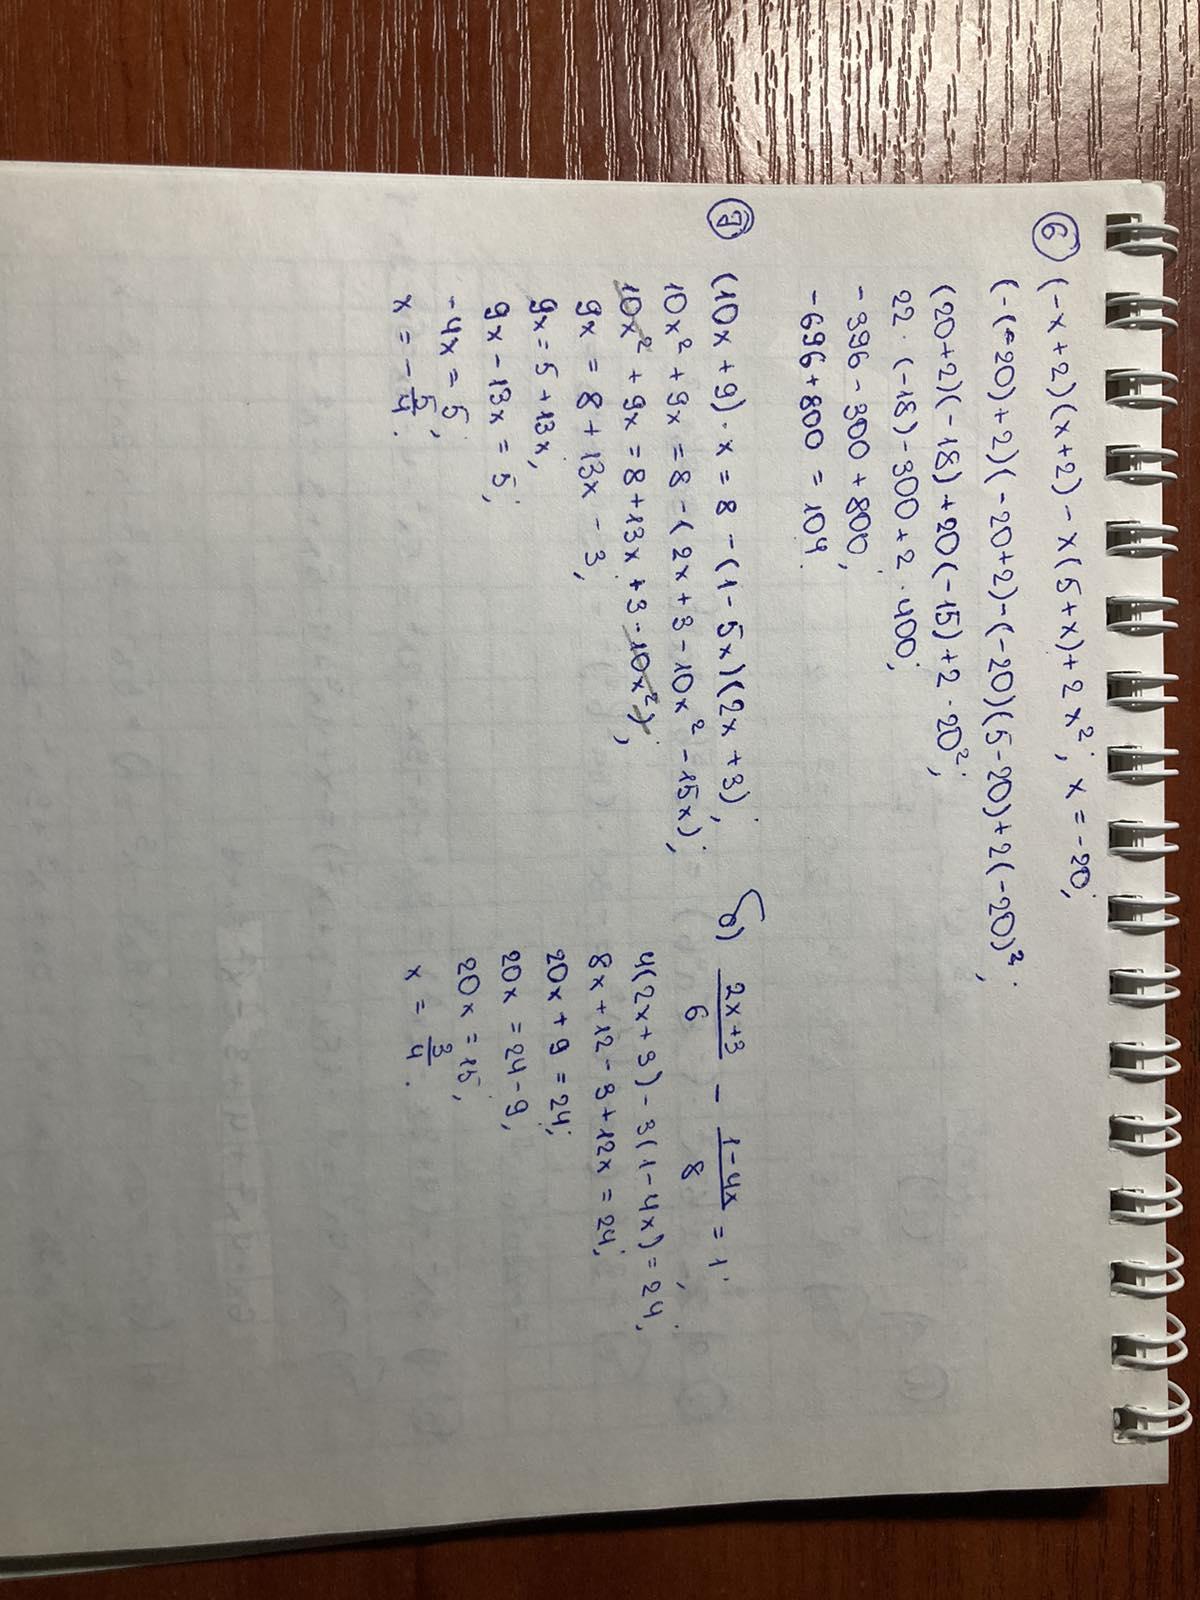 6 (-x+2)(x+2)-x(5+x)+2x², x=-20;
(-(-20)+2)(-20+2)-(-20)(5-20)+2(-20)²;
(20+2)(-18)+20(-15)+2·20²;
22·(-18)-300+2·400;
-396-300+800;
-696+800=104.
7 (10x+9)·x=8-(1-5x)(2x+3);
10x²+9x=8-(2x+3-10x²-15x);
10x²+9x=8+13x+3-10x²);
9x=8+13x-3;
9x=5+13x;
9x-13x=5;
-4x=5;
x=-5/4.
б) (2x+3)/6 - (1-4x)/8 = 1;
4(2x+3)-3(1-4x)=24;
8x+12-3+12x=24;
20x+9=24;
20x=24-9;
20x=15;
x=3/4.